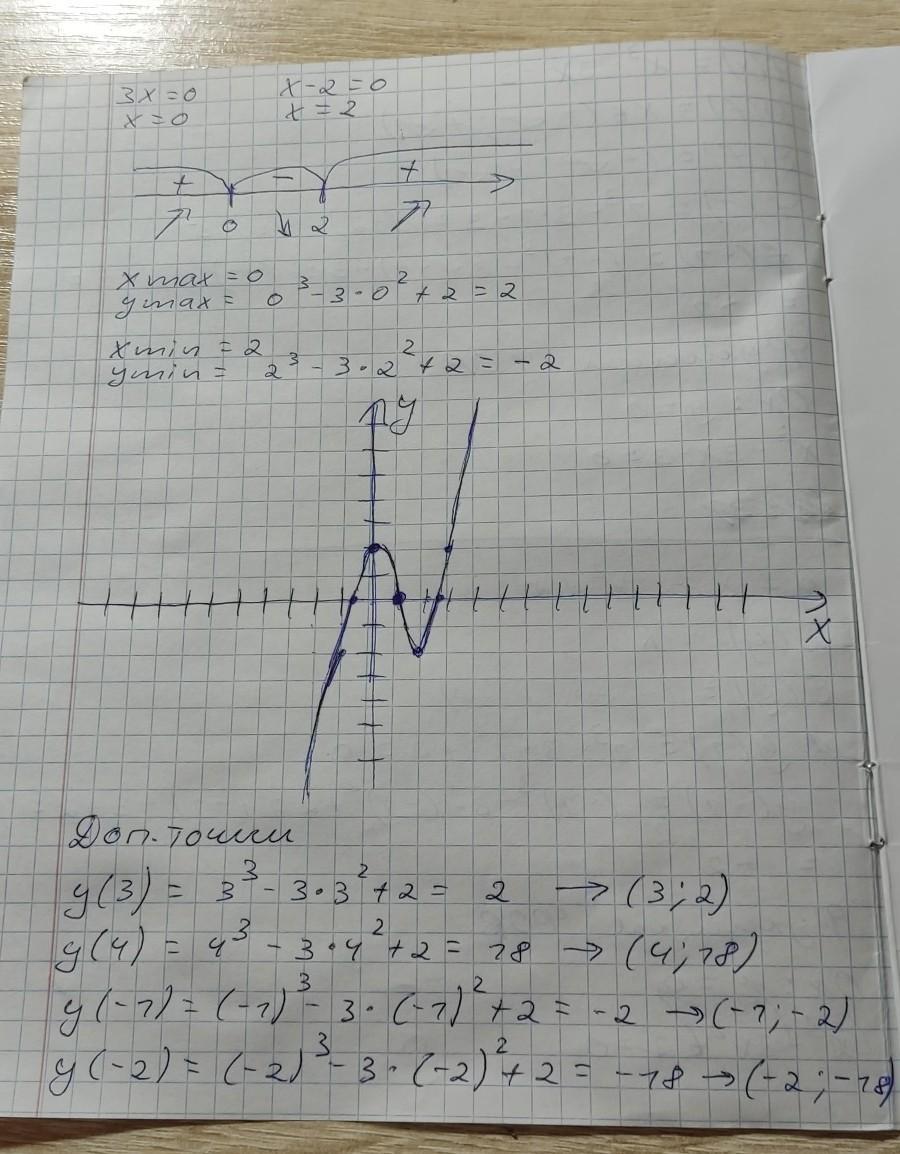 3x=0 x-2=0
x=0 x=2
+ - +
0 2
x max = 0
y max = 0³-3·0²+2=2
x min = 2
y min = 2³-3·2²+2=-2
y
x
Доп. точки
y(3) = 3³-3·3²+2= 2 → (3;2)
y(4) = 4³-3·4²+2= 18 → (4;18)
y(-1) = (-1)³-3·(-1)²+2 = -2 → (-1;-2)
y(-2) = (-2)³-3·(-2)²+2 = -18 → (-2;-18)